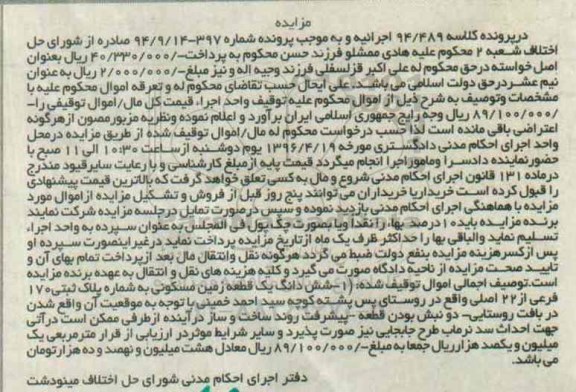 مزایده
درپرونده کلاسه ۹۴/۴۸۹ اجرائیه و به موجب پرونده شماره ۳۹۷-۹۴/۹/۱۴ صادره از شورای حل
اختلاف شعبه ۲ محکوم علیه هادی ممشلو فرزند حسن محکوم به پرداخت-/۴۰/۳۳۰/۰۰۰ ریال بعنوان
اصل خواسته درحق محکوم له علی اکبر قزلسفلی فرزند وجیه اله و نیز مبلغ-/۲/۰۰۰/۰۰۰ ریال به عنوان
نیم عشردرحق دولت اسلامی می باشید. علی ایحال حسب تقاضای محکوم له و تعرفه اموال محکوم علیه با
مشخصات وتوصیف به شرح ذیل از اموال محکوم علیه توقیف واحد اجرا، قیمت کل مال/اموال توقیفی را-
/۸۹/۱۰۰/۰۰۰ ریال وجه رایج جمهوری اسلامی ایران برآورد و اعلام نموده ونظریه مزبورمصون ازهرگونه
اعتراضی باقی مانده است لذا حسب درخواست محکوم له مال/اموال توقیف شده از طریق مزایده درمحل
واحد اجرای احکام مدنی دادگستری مورخه ۱۳۹۶/۴/۱۹ یوم دوشنبه ازساعت ۱۰:۳۰ الی ۱۱ صبح با
حضورنماینده دادسرا وماموراجرا انجام میگردد قیمت پایه ازمبلغ کارشناسی و با رعایت سایرقیود مندرج
درماده ۱۳۱ قانون اجرای احکام مدنی شروع و مال به کسی تعلق خواهد گرفت که بالاترین قیمت پیشنهادی
را قبول کرده است خریداریا خریداران می توانند پنج روز قبل از فروش و تشکیل مزایده ازاموال مورد
مزایده با هماهنگی اجرای احکام مدنی بازدید نموده و سپس درصورت تمایل درجلسه مزایده شرکت نمایند
برنده مزایده باید ۱۰درصد بها، را نقدا ویا بصورت چک پول فی المجلس به عنوان سپرده به واحد اجرا،
تسلیم نماید والباقی بها را حداکثر ظرف یک ماه ازتاریخ مزایده پرداخت نماید درغیراینصورت سپرده او
پس ازکسرهزینه مزایده بنفع دولت ضبط می گردد هرگونه نقل وانتقال مال بعد ازپرداخت تمام بهای آن و
تایید صحت مزایده از ناحیه دادگاه صورت می گیرد و کلیه هزینه های نقل و انتقال به عهده برنده مزایده
است.توصیف اجمالی اموال توقیف شده: (۱-شش دانگ یک قطعه زمین مسکونی به شماره پلاک ثبتی۱۷۰
فرعی از۲۲ اصلی واقع در روستای پس پشته کوچه سید احمد خمینی با توجه به موقعیت آن واقع شدن
در بافت روستایی- دو نبش بودن قطعه -پیشرفت روند ساخت و ساز درآینده ازطرفی ممکن است درآتی
جهت احداث سد نرماب طرح جابجایی نیز صورت پذیرد و سایر شرایط موثردر ارزیابی از قرار مترمربعی یک
میلیون و یکصد هزارریال جمعا به مبلغ-/۸۹/۱۰۰/۰۰۰ ریال معادل هشت میلیون و نهصد و ده هزارتومان
می باشد.
دفتر اجرای احکام مدنی شورای حل اختلاف مینودشت